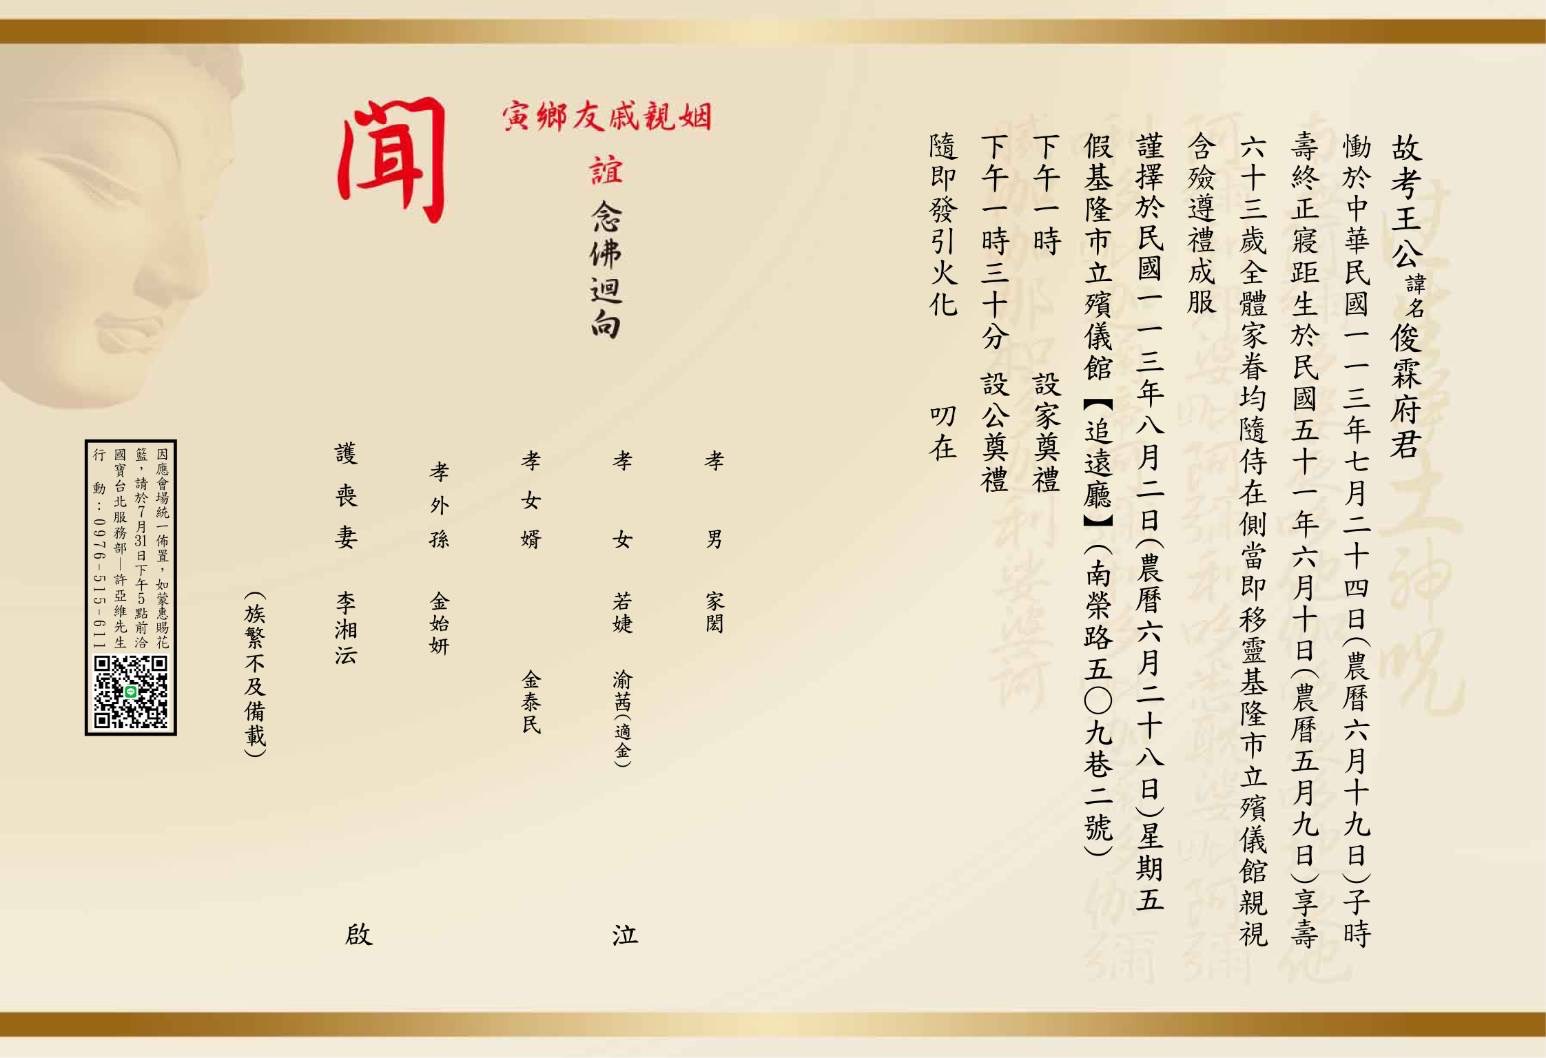 故考王公諱名俊霖府君
慟於中華民國一一三年七月二十四日(農曆六月十九日)子時
壽終正寢距生於民國五十一年六月十日(農曆五月九日)享壽
六十三歲全體家眷均隨侍在側當即移靈基隆市立殯儀館親視
含殮遵禮成服
謹擇於民國一一三年八月二日(農曆六月二十八日)星期五
假基隆市立殯儀館【追遠廳】(南榮路五〇九巷二號)
下午一時 設家奠禮
下午一時三十分 設公奠禮
隨即發引火化 叨在
姻親戚友鄉寅
誼 念佛迴向
聞
孝男 家閎
孝女 若婕 渝茜(適金)
孝女婿 金泰民
孝外孫 金始妍
泣
護喪妻 李湘沄
啟
(族繁不及備載)
因應會場統一佈置,如蒙惠賜花
籃,請於7月31日下午5點前洽
國寶台北服務部—許亞維先生
行動:0976-515-611
往生淨土神咒